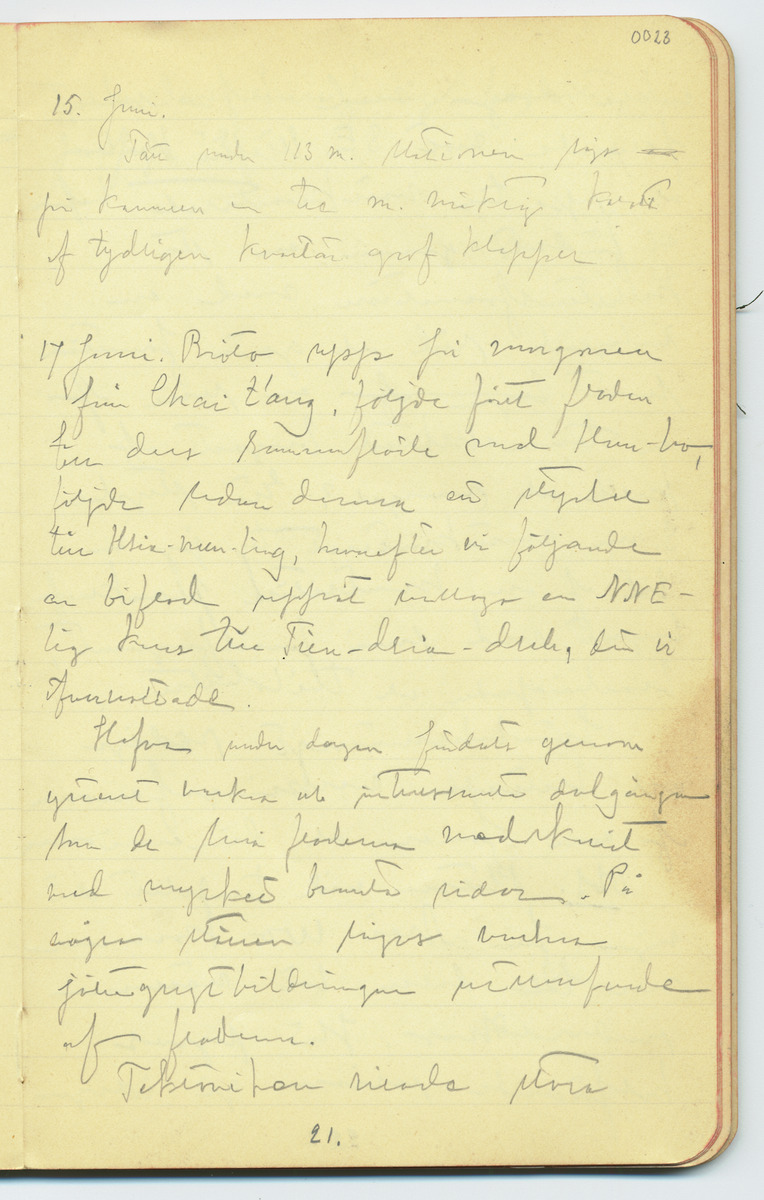 0023
15. Juni.
Tätt under 113 m. stationen sågs
på kammen en tio m. mäktig kant
af tydligen kvartär grof klapper
17 Juni. Bröto upp på morgonen
från Chai t'ang, följde först floden
till dess sammanflöde med Hun-ho,
följde sedan denna ett stycke
till Hsia-men-ling, hvarefter vi följande
en biflod uppåt intogo en NNE-
lig kurs till Tien-dsia-dseh, där vi
öfvernattade.
Hafva under dagen färdats genom
ytterst vackra och intressanta dalgångar
som de små floderna nedskurit
med mycket branta sidor. På
några ställen sågos vackra
jättegrytbildningar utformade
af floderna.
Tektoniken visade stora
21.